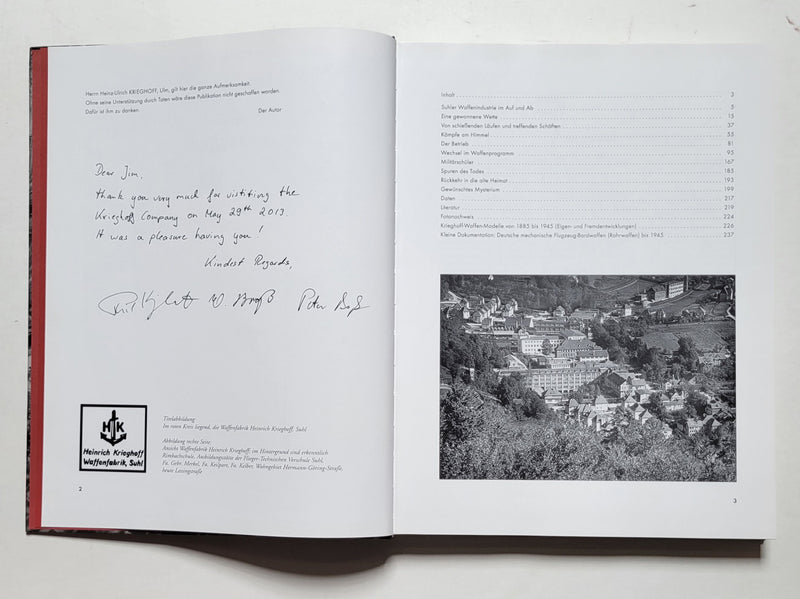 Herrn Heinz-Ulrich KRIEGHOFF, Ulm, gilt hier die ganze Aufmerksamkeit.
Ohne seine Unterstützung durch Taten wäre diese Publikation nicht geschaffen worden.
Dafür ist ihm zu danken.
Der Autor
Dear Jim,
thank you very much for vistiting the
Krieghoff Company on May 29th 2013.
It was a pleasure having you!
Kindest Regards,
Peter
HK
Heinrich Krieghoff
Waffenfabrik, Suhl
Titelabbildung:
Im roten Kreis liegend, die Waffenfabrik Heinrich Krieghoff, Suhl
Abbildung rechte Seite
Ansicht Waffenfabrik Heinrich Krieghoff, im Hintergrund sind erkenntlich
Rimbachschule, Ausbildungsstätte der Flieger-Technischen Vorschule Suhl,
Fa. Gebr. Merkel, Fa. Keilpart, Fa. Kelber, Wohngebiet Hermann-Göring-Straße,
heute Lessingstraße
2
Inhalt 3
Suhler Waffenindustrie im Auf und Ab 5
Eine gewonnene Wette 15
Von schießenden Läufen und treffenden Schäften 37
Kämpfe am Himmel 55
Der Betrieb 81
Wechsel im Waffenprogramm 95
Militärschüler 167
Spuren des Todes 185
Rückkehr in die alte Heimat 193
Gewünschtes Mysterium 199
Daten 217
Literatur 219
Fotonachweis 224
Krieghoff-Waffen-Modelle von 1885 bis 1945 (Eigen- und Fremdentwicklungen) 226
Kleine Dokumentation: Deutsche mechanische Flugzeug-Bordwaffen (Rohrwaffen) bis 1945 237
3